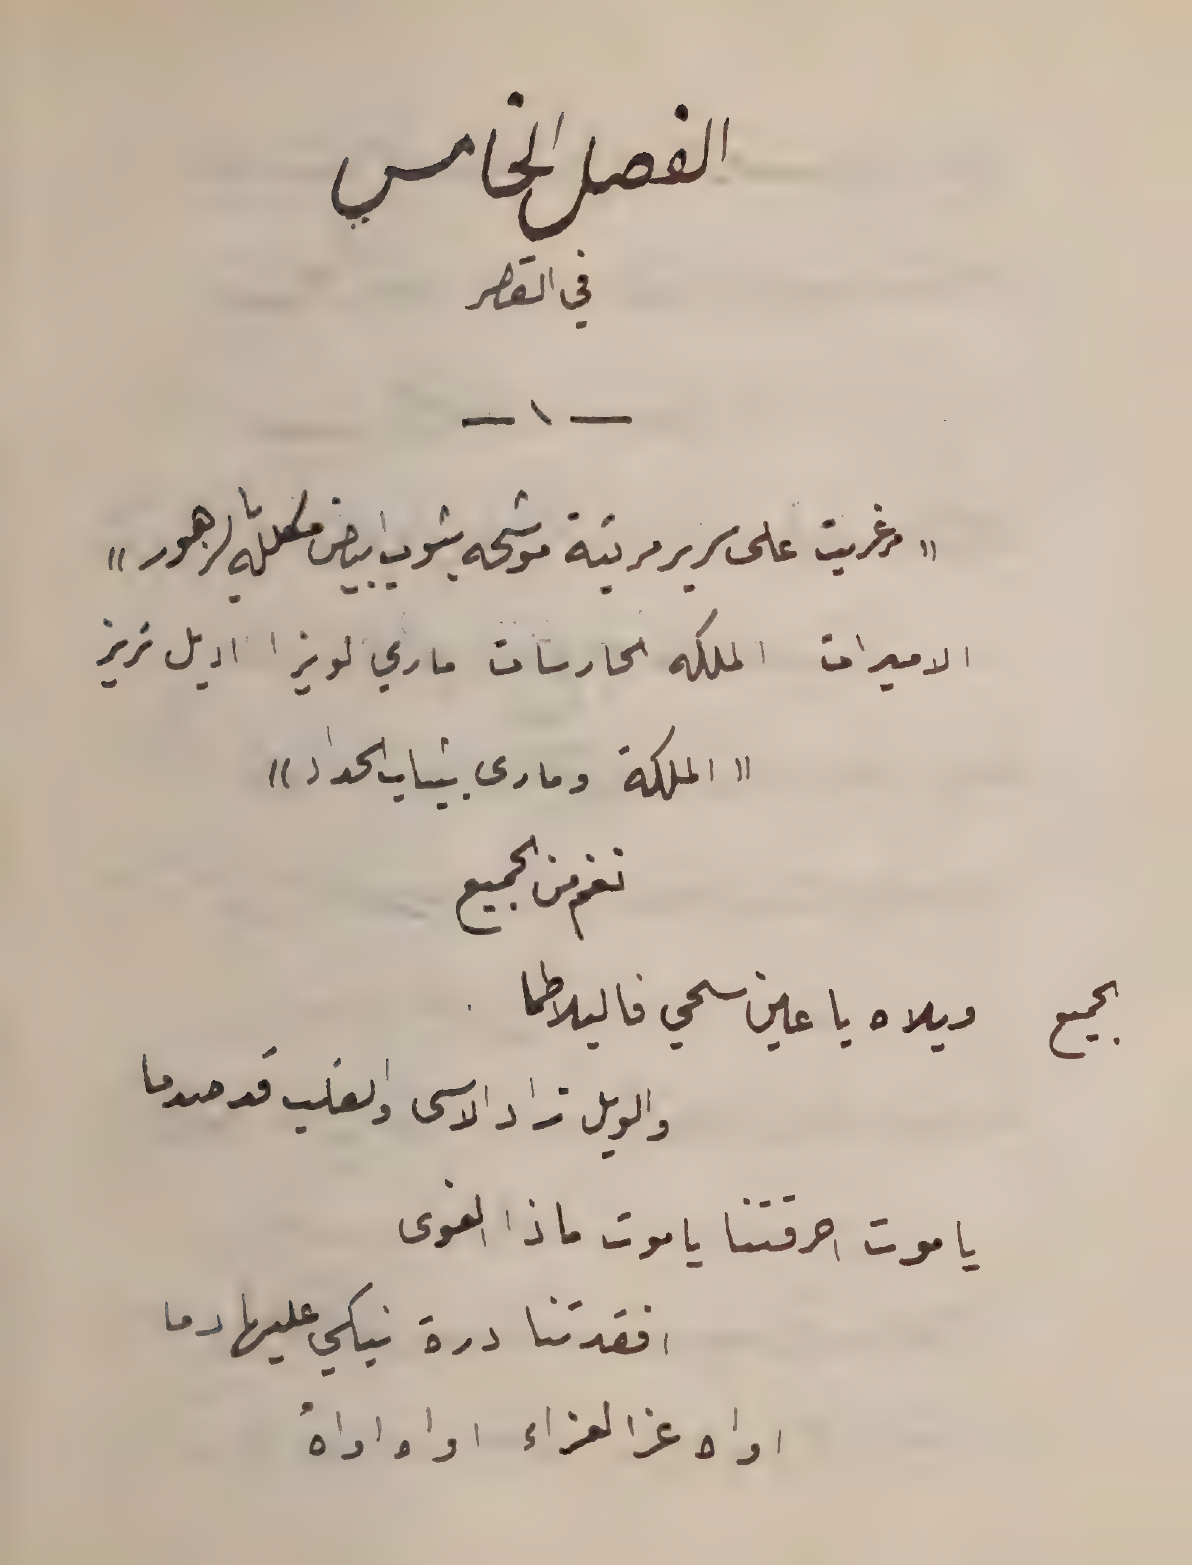 الفصل الخامس
في القصر
— ١ —
« مرغريت على سرير مريتة موشحه بثوب ابيض مكلله بالزهور »
الاميرات الملكه الحارسات ماري لويزا اديل تريز
« الملكة ومارى بثياب الحداد »
نغم من الجميع
الجميع ويلاه يا عين سحي فالبلا طما
والويل زاد الاسى والقلب قد صدما
يا موت احرقتنا يا موت ماذا القوى
افقدتنا درة نبكي عليها دما
اواه عز العزاء اواه اواهُ